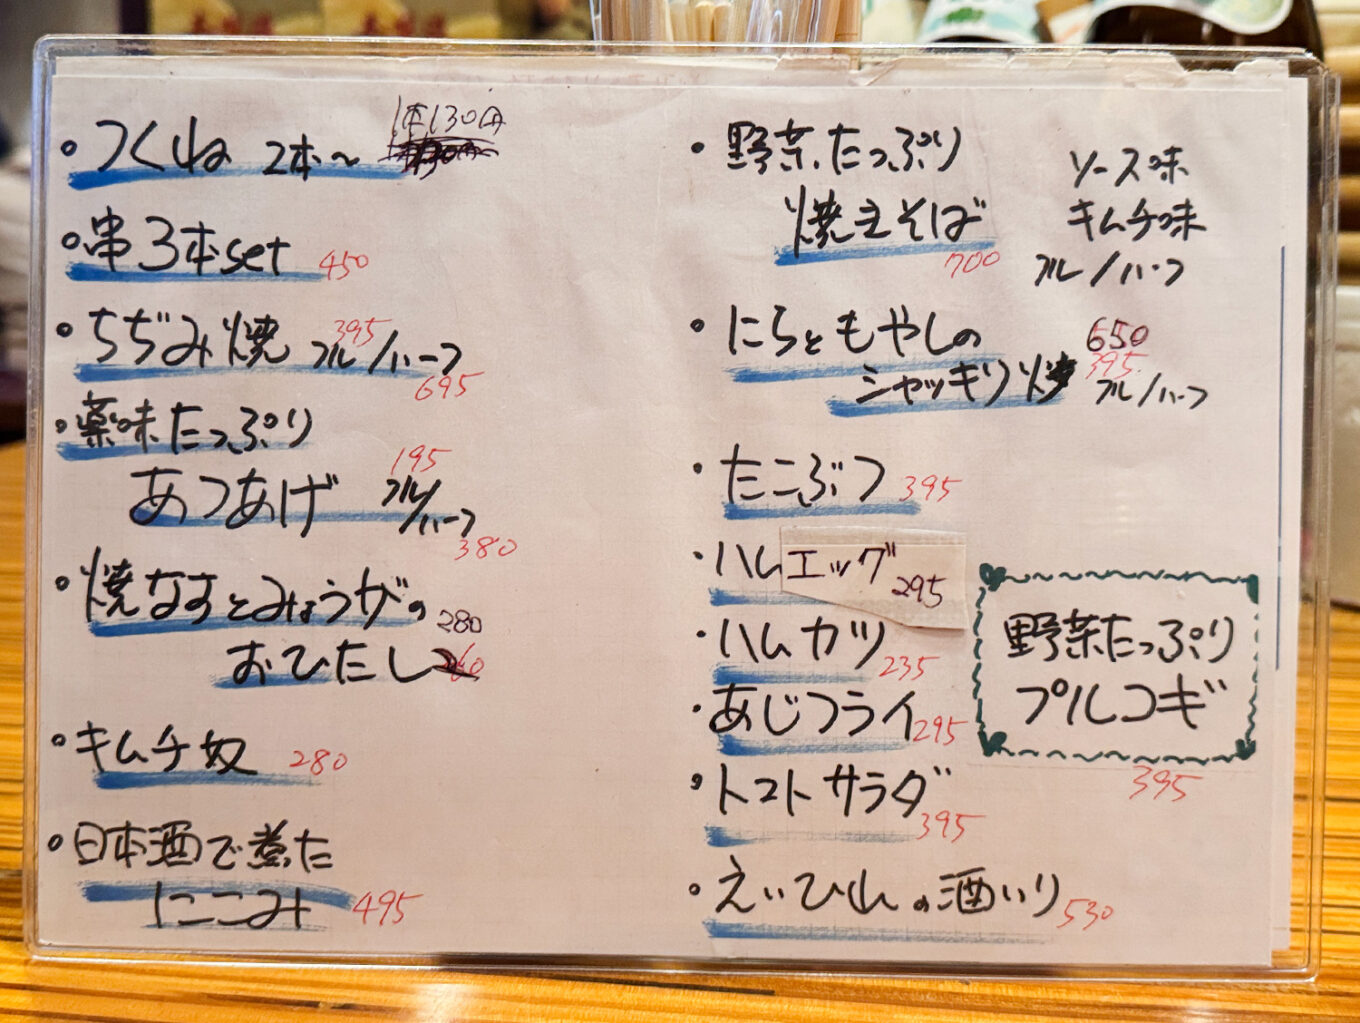 ・つくね 2本〜 1本130円
・串3本set 450
・ちぢみ焼 395 フル/ハーフ 695
・薬味たっぷり
あつあげ 195 フル/ハーフ 380
・焼なすとみょうがの
おひたし 280
・キムチ奴 280
・日本酒で煮た
にこごみ 495
・野菜たっぷり
焼きそば 700
ソース味
キムチ味
フル/ハーフ
・にらともやしの 650
シャッキリ炒 395 フル/ハーフ
・たこぶつ 395
・ハムエッグ 295
・ハムカツ 235
・あじフライ 295
・トマトサラダ 395
・えいひれの酒いり 530
野菜たっぷり
プルコギ
395